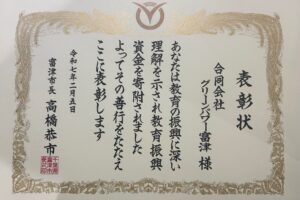 表彰状
合同会社
グリーンパワー富津 様
あなたは教育の振興に深い
理解を示され教育振興
資金を寄附されました
よってその善行をたたえ
ここに表彰します
令和七年二月五日
富津市長 高橋恭市